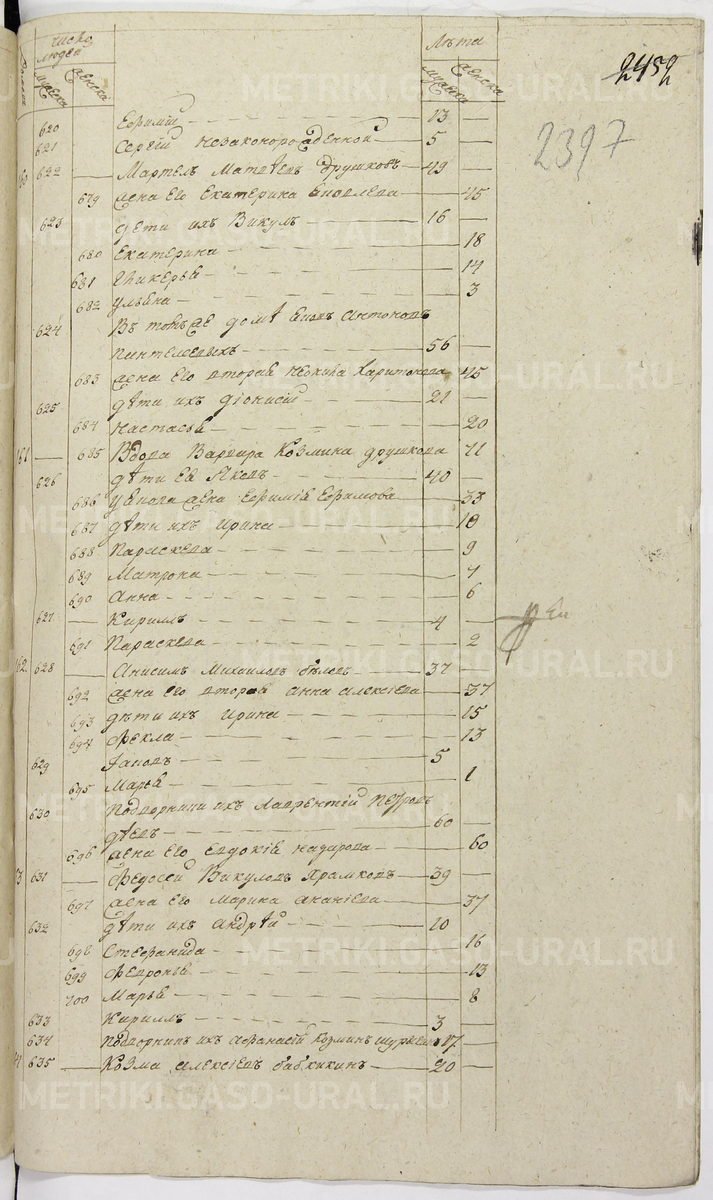 число людей
мужеска
женска
лѣта
мужеска
женска
2452
2397
620 Ефримий 13
621 Сергий незаконорожденной 5
622 Мартел Матвѣев 49
679 жена его Екатерина Яковлева 45
623 дети их Викул 16
680 Екатерина 18
681 Гликерья 14
682 Ульяна 3
624 В том же домѣ Яков Антонов
Пинтелеевых 56
683 жена его вторая Харитонова 45
625 дѣти их Дионисий 21
684 Настасья 20
151 685 Вдова Варвара Козмина Друшкова 71
626 дѣти ея Яков 40
686 у Якова жена Ефримия Ефримова 33
687 дѣти их Ирина 10
688 Параскева 9
689 Матрона 7
690 Анна 6
627 Кирилл 4
691 Параскева 2
628 Анисим Михаилов Бѣлов 37
692 жена его вторая Анна Алексiева 37
693 дѣти их Ирина 15
694 Фекла 13
629 Иаков 5
695 Марья 1
630 Подворники их Лаврентий Петров
60
696 жена его Евдокия 60
631 Федосей Викулов Храмков 39
697 жена его Марина Ананiева 37
632 дѣти их Андрѣй 10
698 Стефанида 16
699 Февронья 13
700 Марья 8
633 Кирилл 3
634 подворник их Афанасий Козмин 17
635 Козма Алексiев Бабкикин 20
METRIKI.GASO-URAL.RU